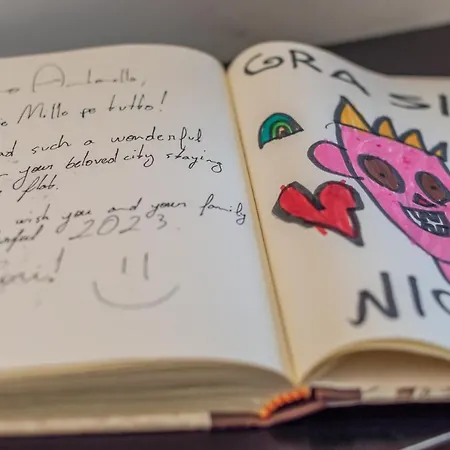 Antonella,
Mille pe tutto!
such a wonderful
your beloved city staying
flat.
wish you and your family
2023.
GRASI
NIC